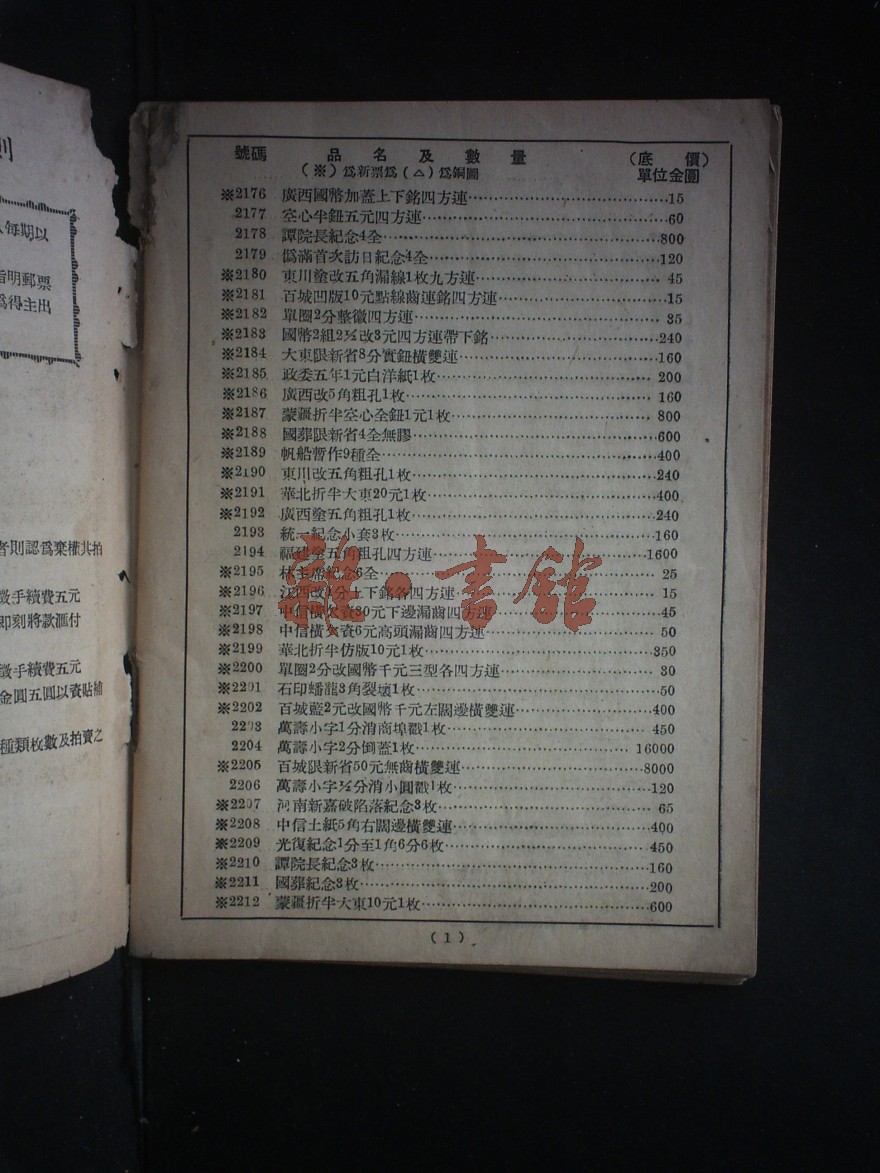 則
每期以
指明郵票
爲得主出
者則認爲棄權共拍
徵手續費五元
即刻將款滙付
徵手續費五元
金圓五圓以資貼補
種類枚數及拍賣之
號碼 品名及數量 (底價)
(※)爲新票爲(△)爲銅圖 單位金圓
※2176 廣西國幣加蓋上下銘四方連 15
2177 空心半鈕五元四方連 60
2178 譚院長紀念4全 800
2179 僞滿首次訪日紀念4全 120
※2180 東川塗改五角漏線1枚九方連 45
※2181 百城凹版10元點線齒連銘四方連 15
※2182 單圈2分整徽四方連 35
※2183 國幣2組2½改3元四方連帶下銘 240
※2184 大東限新省8分實鈕橫雙連 160
※2185 政委五年1元白洋紙1枚 200
※2186 廣西改5角粗孔1枚 160
※2187 蒙疆折半空心全鈕1元1枚 800
※2188 國葬限新省4全無膠 600
※2189 帆船暫作9種全 400
※2190 東川改五角粗孔1枚 240
※2191 華北折半大東20元1枚 400
※2192 廣西塗五角粗孔1枚 240
2193 統一紀念小套3枚 160
2194 福建塗五角粗孔四方連 1600
※2195 林主席紀念6全 25
※2196 江西改4分上下銘各四方連 15
※2197 中信橫欠資30元下邊漏齒四方連 45
※2198 中信橫欠資6元高頭漏齒四方連 50
※2199 華北折半仿版10元1枚 350
※2200 單圈2分改國幣千元三型各四方連 30
※2201 石印蟠龍3角裂壞1枚 50
※2202 百城藍2元改國幣千元左闊邊橫雙連 400
2203 萬壽小字1分消商埠戳1枚 450
2204 萬壽小字2分倒蓋1枚 16000
※2205 百城限新省50元無齒橫雙連 8000
2206 萬壽小字½分消小圓戳1枚 120
※2207 河南新嘉破陷落紀念3枚 65
※2208 中信土紙5角右闊邊橫雙連 400
※2209 光復紀念1分至1角6分6枚 450
※2210 譚院長紀念3枚 160
※2211 國葬紀念3枚 200
※2212 蒙疆折半大東10元1枚 600
(1)